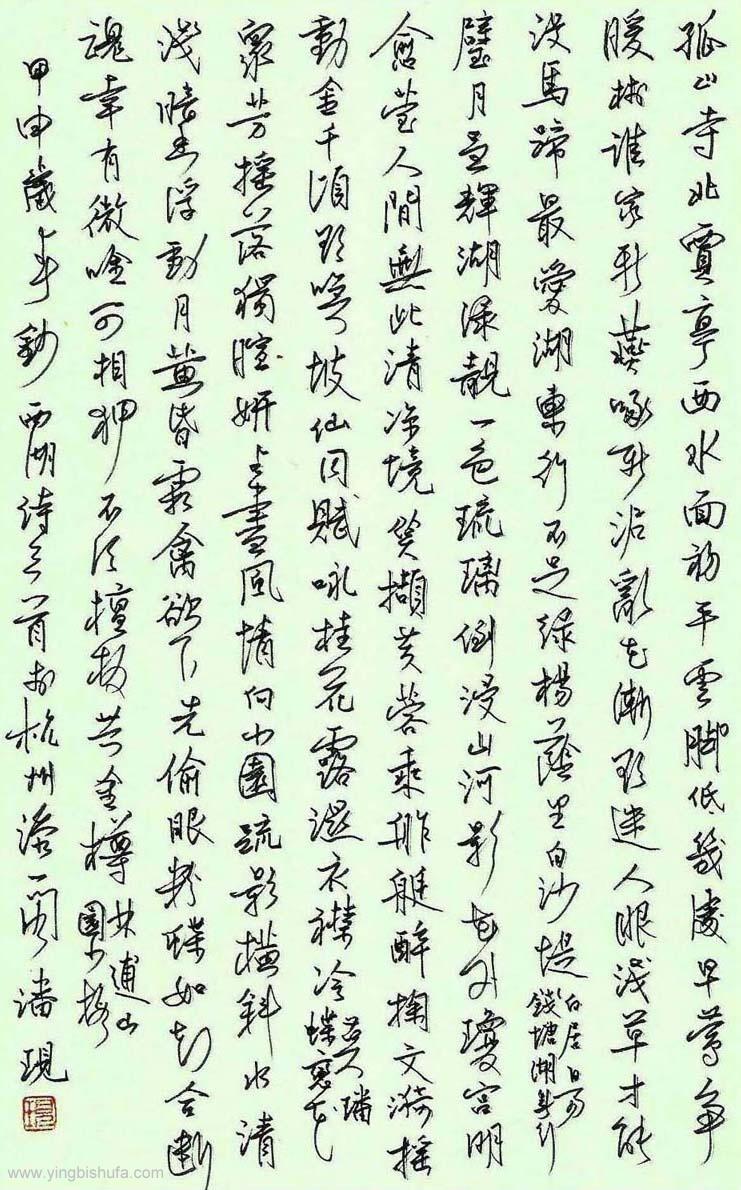 孤山寺北賈亭西水面初平雲腳低幾處早鶯爭
暖樹誰家新燕啄新泥亂花漸欲迷人眼淺草才能
沒馬蹄最愛湖東行不足綠楊蔭里白沙堤 白居易錢塘湖春行
璧月呈輝湖漾靚一色琉璃倒浸山河影花外瓊宮明
愈瑩人間無此清涼境笑擷芙蓉乘舴艋醉掬文漪搖
動金千頃欲喚坡仙同賦詠桂花露濕衣襟冷 璠蝶戀花
眾芳搖落獨暄妍占盡風情向小園疏影橫斜水清
淺暗香浮動月黃昏霜禽欲下先偷眼粉蝶如知合斷
魂幸有微吟可相狎不須檀板共金樽 林逋山園小梅
甲申歲 鈔西湖詩三首於杭州 一閣潘現
www.yingbishufa.com